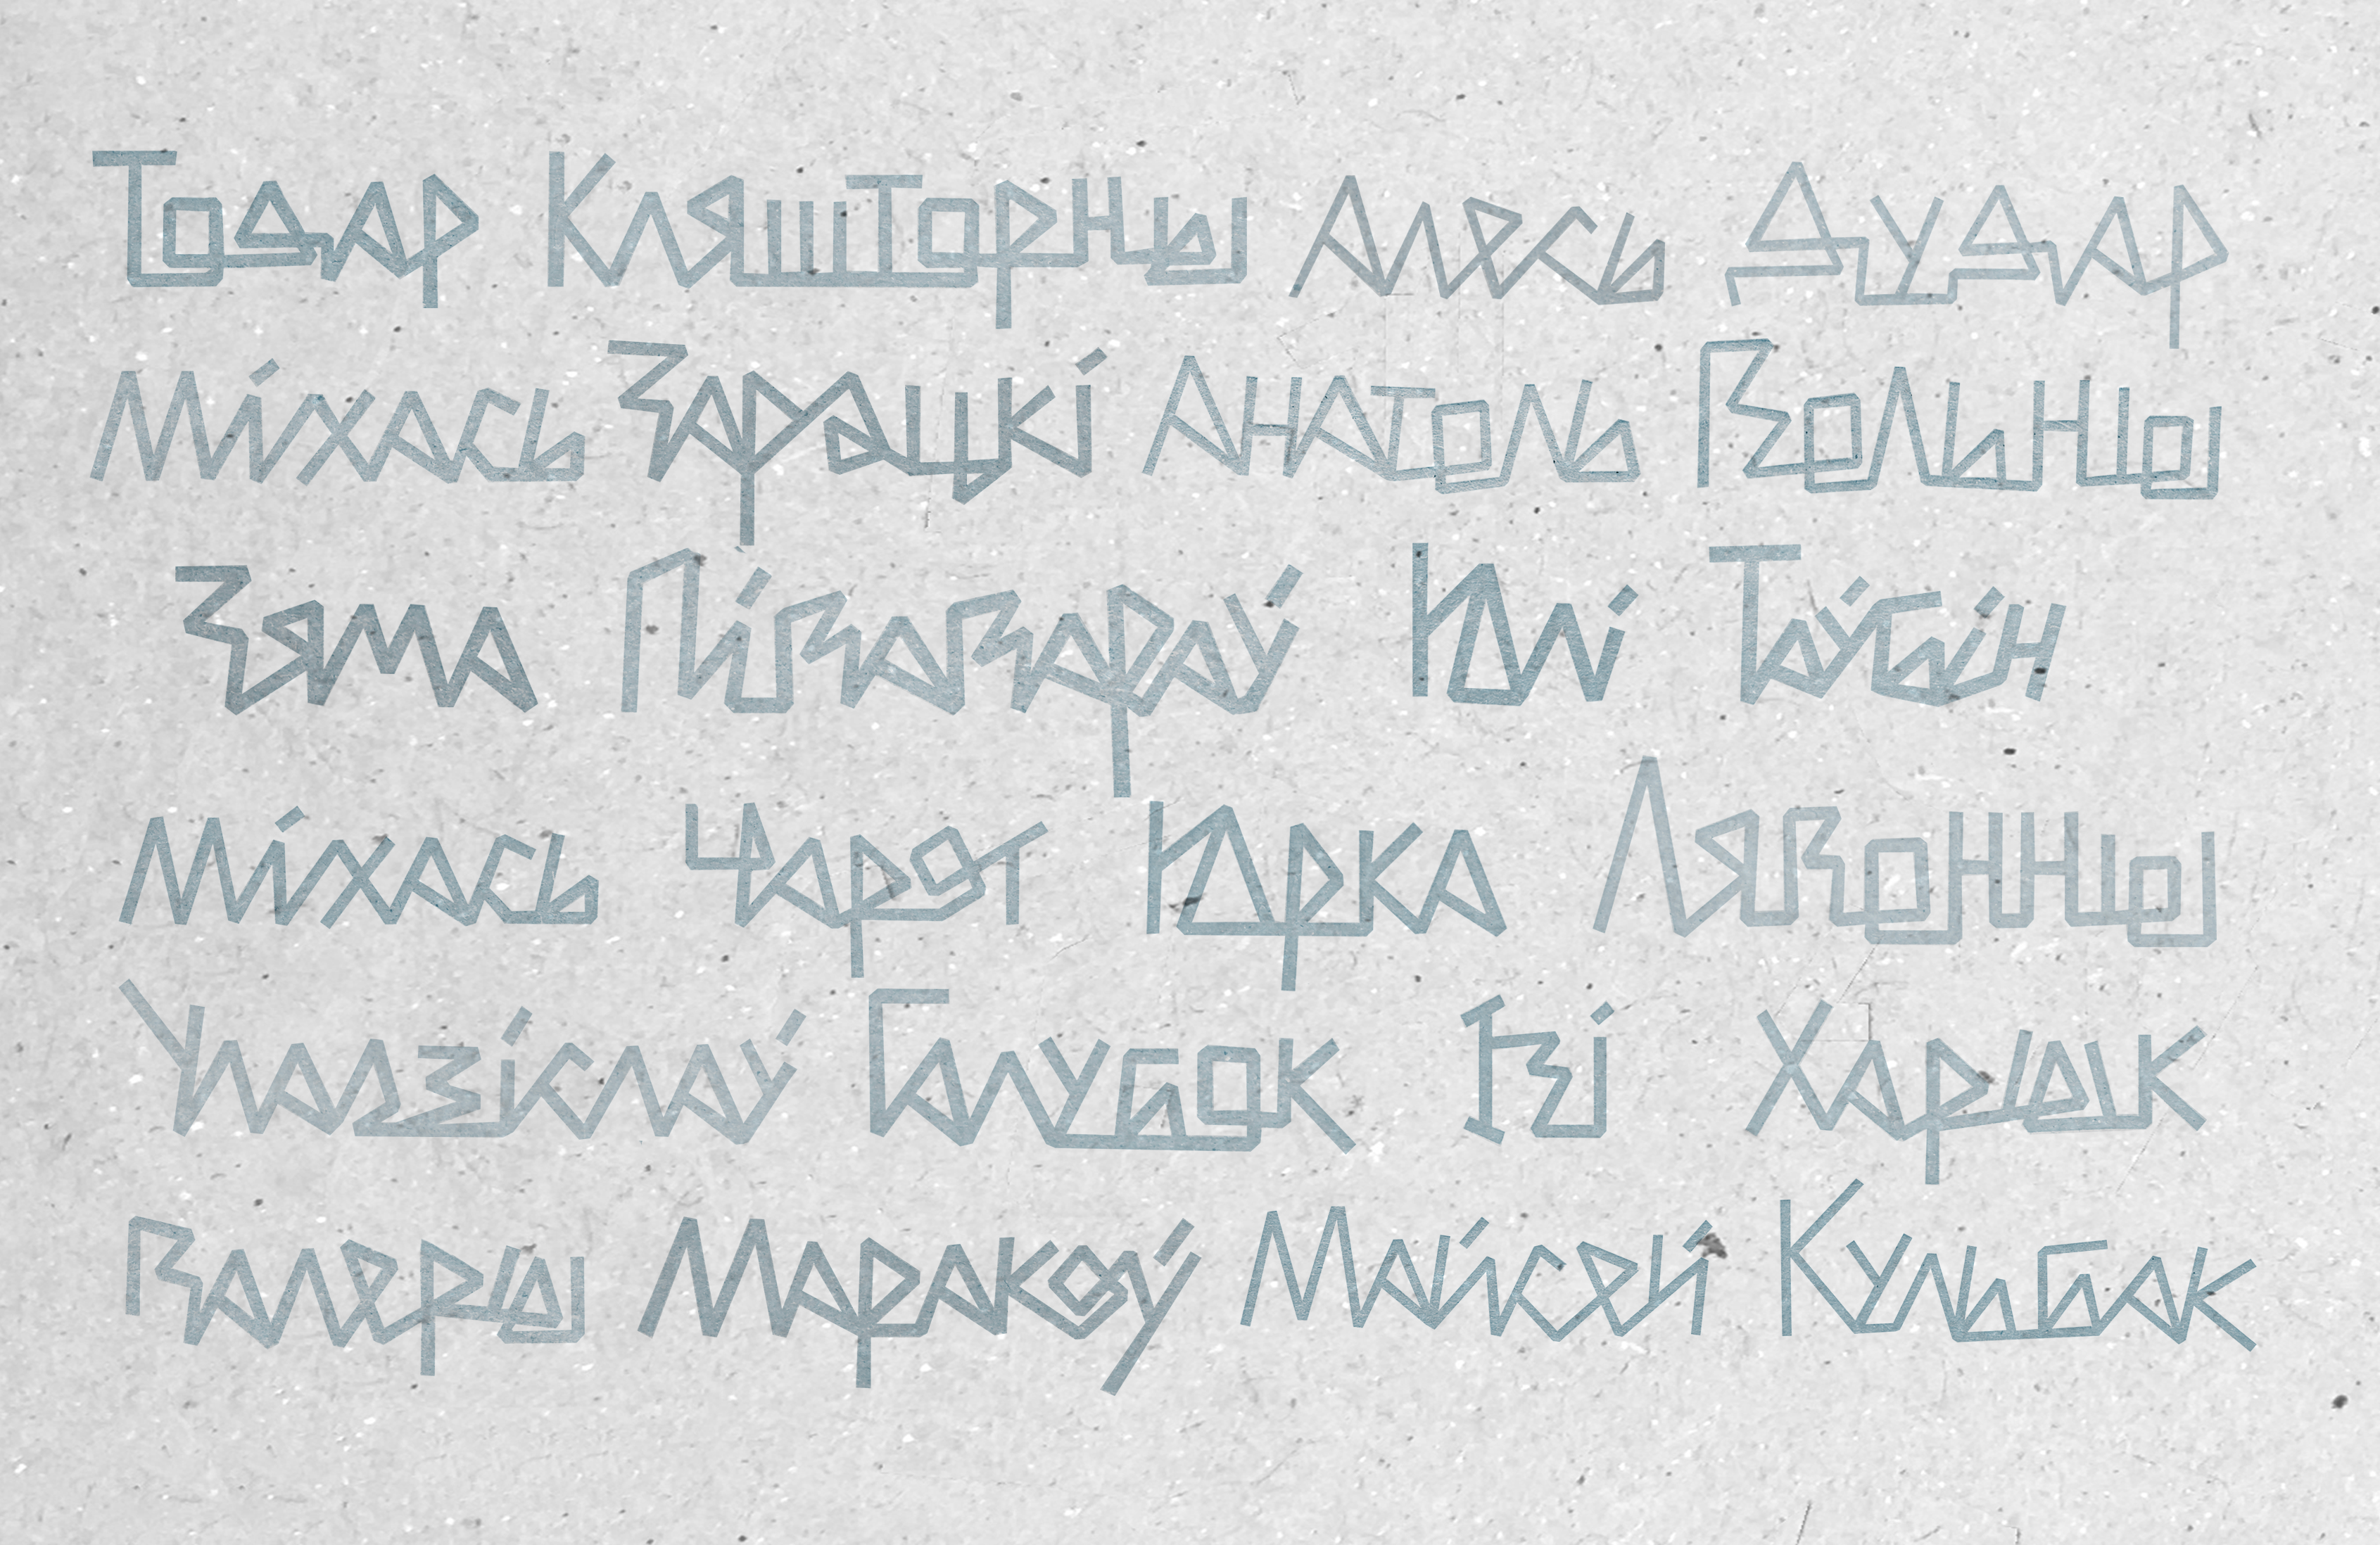 Тодар Кляшторны Алесь Дудар
Міхась Зарацкі Анатоль Вольны
Зяма Півавараў Юлі Таўбін
Міхась Чарот Юрка Лявонны
Уладзіслаў Галубок Ізі Харык
Валеры Маракоў Майсей Кульбак